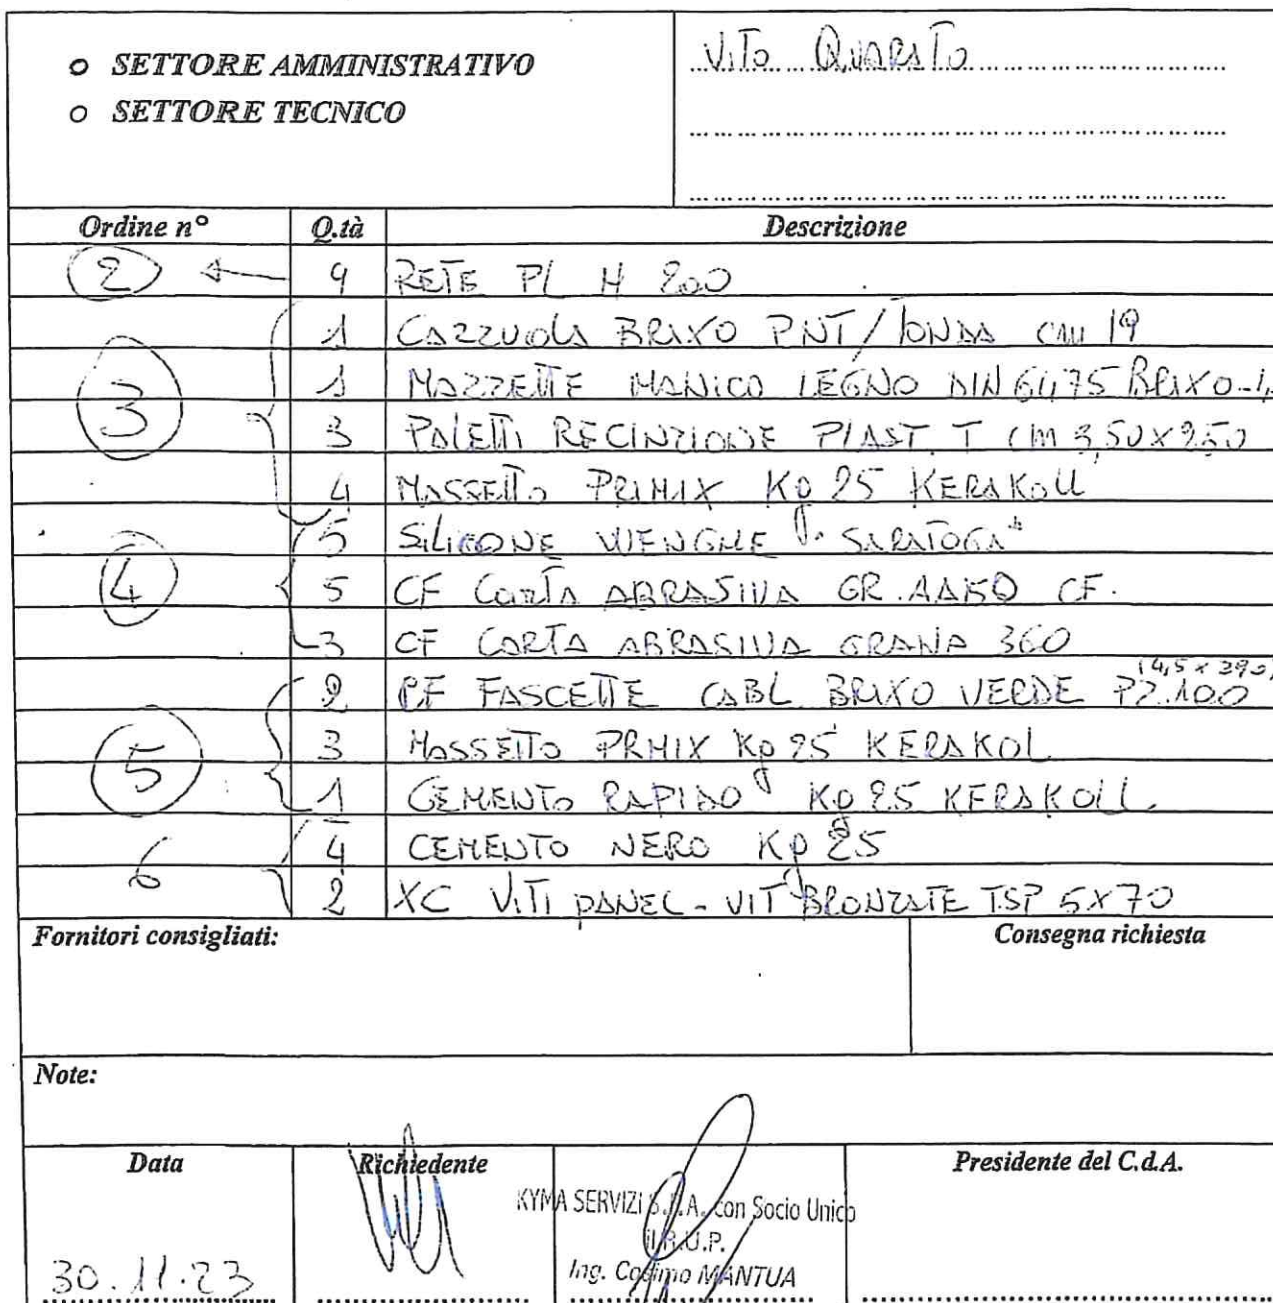 SETTORE AMMINISTRATIVO
SETTORE TECNICO
VITO QUARATO
Ordine n° Q.tà Descrizione
2 9 RETE Pl H 200
1 CAZZUOLA BRIXO PNT/TONDA CM 19
3 1 MAZZETTE MANICO LEGNO DIN 6475 BRIXO
3 PALETTI RECINZIONE PLAST T CM 3,50X250
4 MASSETTO PRIMIX Kg 25 KERAKOLL
5 SILICONE WENGHE "SARATOGA"
4 5 CF CARTA ABRASIVA GR. CF.
3 CF CARTA ABRASIVA GRANA 360
2 P.F FASCETTE CABL. BRIXO VERDE PZ.100 (4,5 x 290)
3 MASSETTO PRMIX Kg 25 KERAKOL
5 1 CEMENTO RAPIDO Kg 25 KERAKOLL
6 4 CEMENTO NERO Kg 25
2 XC VITI PANEL-VIT BRONZATE TSP 5X70
Fornitori consigliati: Consegna richiesta
Note:
Data Richiedente Presidente del C.d.A.
KYMA SERVIZI S.P.A. con Socio Unico
Il R.U.P.
Ing. Cosimo MANTUA
30.11.23